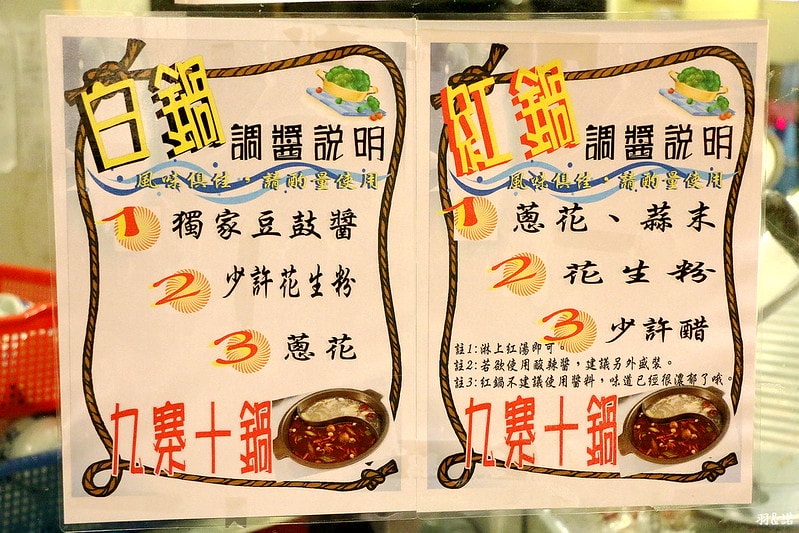 白鍋調醬說明
風味俱佳，請酌量使用
1 獨家豆鼓醬
2 少許花生粉
3 蔥花
九寨十鍋
紅鍋調醬說明
風味俱佳，請酌量使用
1 蔥花、蒜末
2 花生粉
3 少許醋
註1:淋上紅湯即可。
註2:若欲使用酸辣醬，建議另外盛裝。
註3:紅鍋不建議使用醬料，味道已經很濃郁了哦。
九寨十鍋
羽&諾